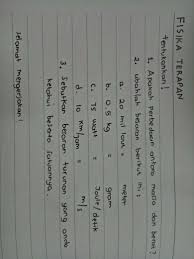 FISIKA TERAPAN
Tentukanlah !
1. Apakah perbedaan antara massa dan berat ?
2. Ubahlah besaran berikut ini :
a. 20 mil laut = meter
b. 0,8 kg = gram
c. 75 watt = Joule/detik
d. 10 km/jam = m/s
3. Sebutkan besaran turunan yang anda
ketahui beserta satuannya.
Selamat mengerjakan !